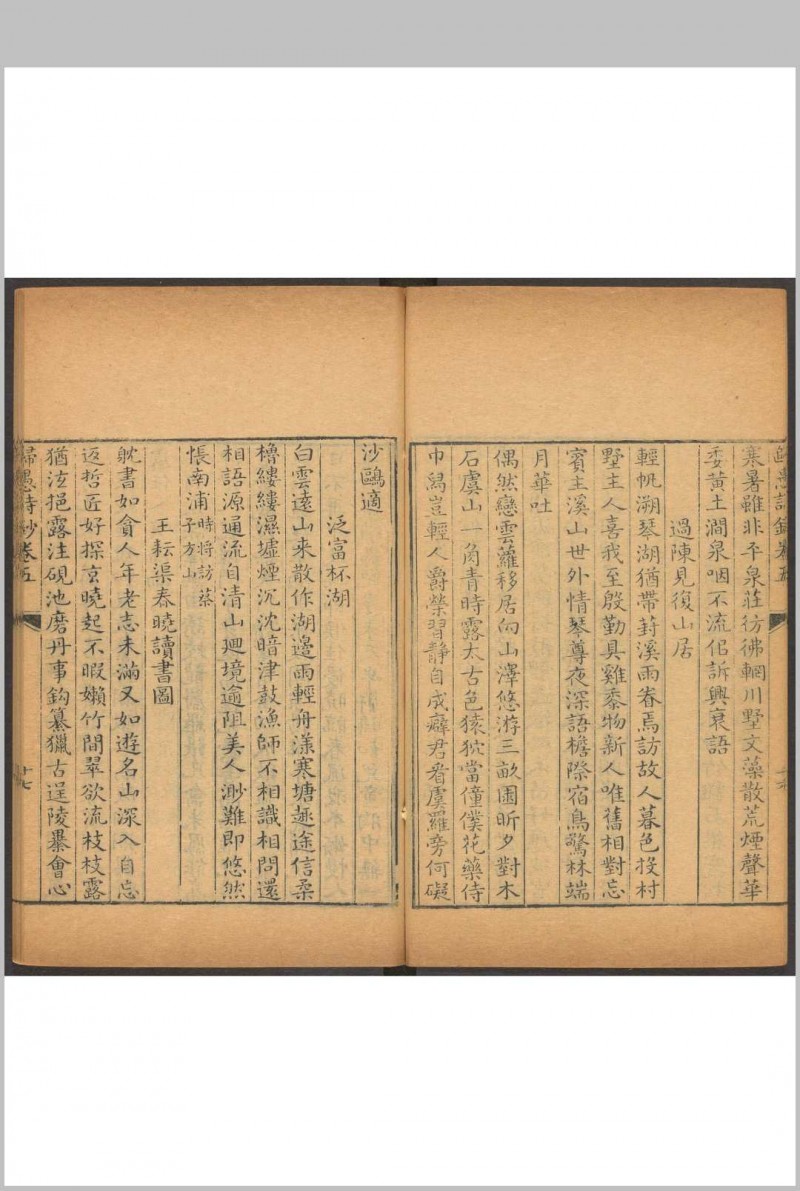 寒暑雖非平泉莊彷彿輞川墅文藻散荒煙聲華
委黃土澗泉咽不流佀訴興衰語
過陳見復山居
輕帆溯琴湖猶帶葑溪雨眷焉訪故人暮色投村
墅主人喜我至殷勤具雞黍物新人唯舊相對忘
賓主溪山世外情琴尊夜深語檐際宿鳥驚林端
月華吐
偶然戀雲蘿移居向山澤悠游三畝園昕夕對木
石虞山一角青時露太古色猿狖當僮僕花藥侍
巾舄豈輕人爵榮習靜自成癖君看虞羅旁何礙
沙鷗適
泛富杯湖
白雲遠山來散作湖邊雨輕舟漾寒塘趣途信柔
櫓縷縷濕墟煙沉沈暗津鼓漁師不相識相問還
相語源通流自清山迴境逾阻美人渺難即悠然
悵南浦時將訪蔡子方山
王耘渠春曉讀書圖
躭書如貪人年老志未滿又如遊名山深入自忘
返哲匠好探京曉起不暇嬾竹間翠欲流枝枝露
猶泫挹露注硯池磨丹事鉤纂獵古逞陵暴會心
歸愚詩鈔卷五
十七